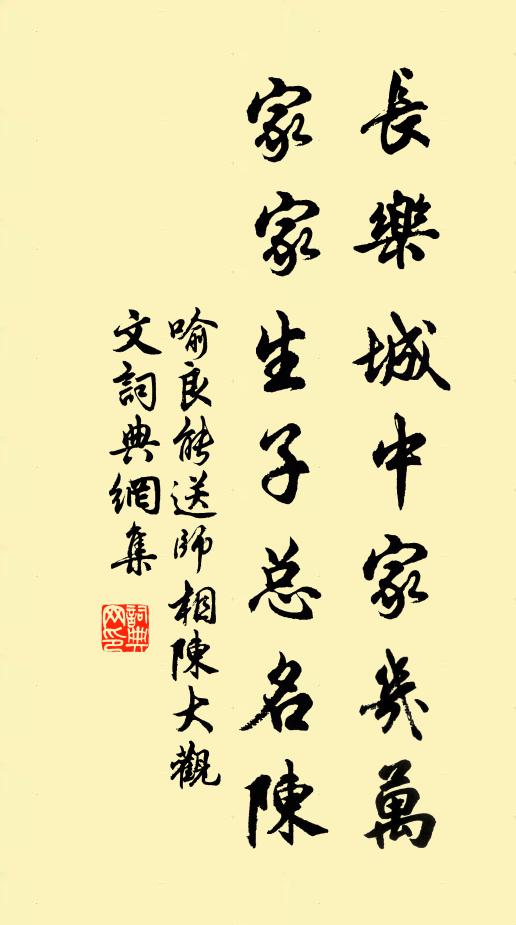 長樂城中家幾萬
家家生子总名陳
喻良能送師相陳大觀
文詞典網集
詞典
网印